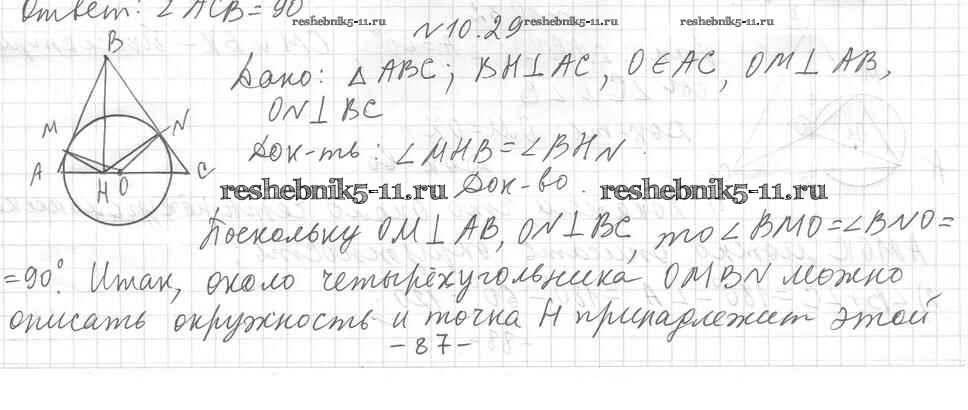 Ответ: ∠ACB = 90°
reshebnik5-11.ru reshebnik5-11.ru reshebnik5-11.ru
№10.29
B
Дано: △ABC; BH⊥AC, O∈AC, OM⊥AB,
ON⊥BC
M N
Док-ть: ∠MHB = ∠BHN.
A H O C
reshebnik5-11.ru Док-во. reshebnik5-11.ru
Поскольку OM⊥AB, ON⊥BC, то ∠BMO=∠BNO=
=90°. Итак, около четырёхугольника OMBN можно
описать окружность и точка H принадлежит этой
-87-